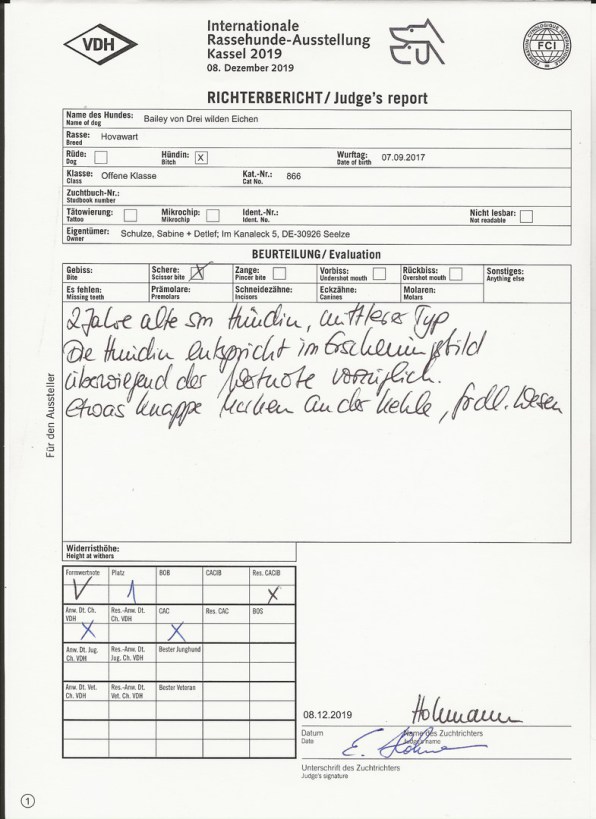 VDH
Internationale
Rassehunde-Ausstellung
Kassel 2019
08. Dezember 2019
FEDERATION CYNOLOGIQUE INTERNATIONALE
FCI
RICHTERBERICHT/Judge's report
Name des Hundes: Bailey von Drei wilden Eichen
Name of dog
Rasse: Hovawart
Breed
Rüde: Hündin: X Wurftag: 07.09.2017
Dog Bitch Date of birth
Klasse: Offene Klasse Kat.-Nr.: 866
Class Cat No.
Zuchtbuch-Nr.:
Studbook number
Tätowierung: Mikrochip: Ident.-Nr.: Nicht lesbar:
Tattoo Mikrochip Ident. No. Not readable
Eigentümer: Schulze, Sabine + Detlef; Im Kanaleck 5, DE-30926 Seelze
Owner
BEURTEILUNG/Evaluation
Gebiss: Schere: X Zange: Vorbiss: Rückbiss: Sonstiges:
Bite Scissor bite Pincer bite Undershot mouth Overshot mouth Anything else
Es fehlen: Prämolare: Schneidezähne: Eckzähne: Molaren:
Missing teeth Premolars Incisors Canines Molars
2 Jahre alte sm Hündin, mittlerer Typ
Die Hündin entspricht im Erscheinungsbild
überwiegend der Wertnote vorzüglich.
etwas knappe Marken an der Kehle, frdl. Wesen
Für den Aussteller
Widerristhöhe:
Height at withers
Formwertnote Platz BOB CACIB Res. CACIB
V 1 X
Anw. Dt. Ch. VDH Res.-Anw. Dt. Ch. VDH CAC Res. CAC BOS
X X
Anw. Dt. Jug. Ch. VDH Res.-Anw. Dt. Jug. Ch. VDH Bester Junghund
Anw. Dt. Vet. Ch. VDH Res.-Anw. Dt. Vet. Ch. VDH Bester Veteran
08.12.2019
Datum Name des Zuchtrichters
Date Judge's name
Unterschrift des Zuchtrichters
Judge's signature
1